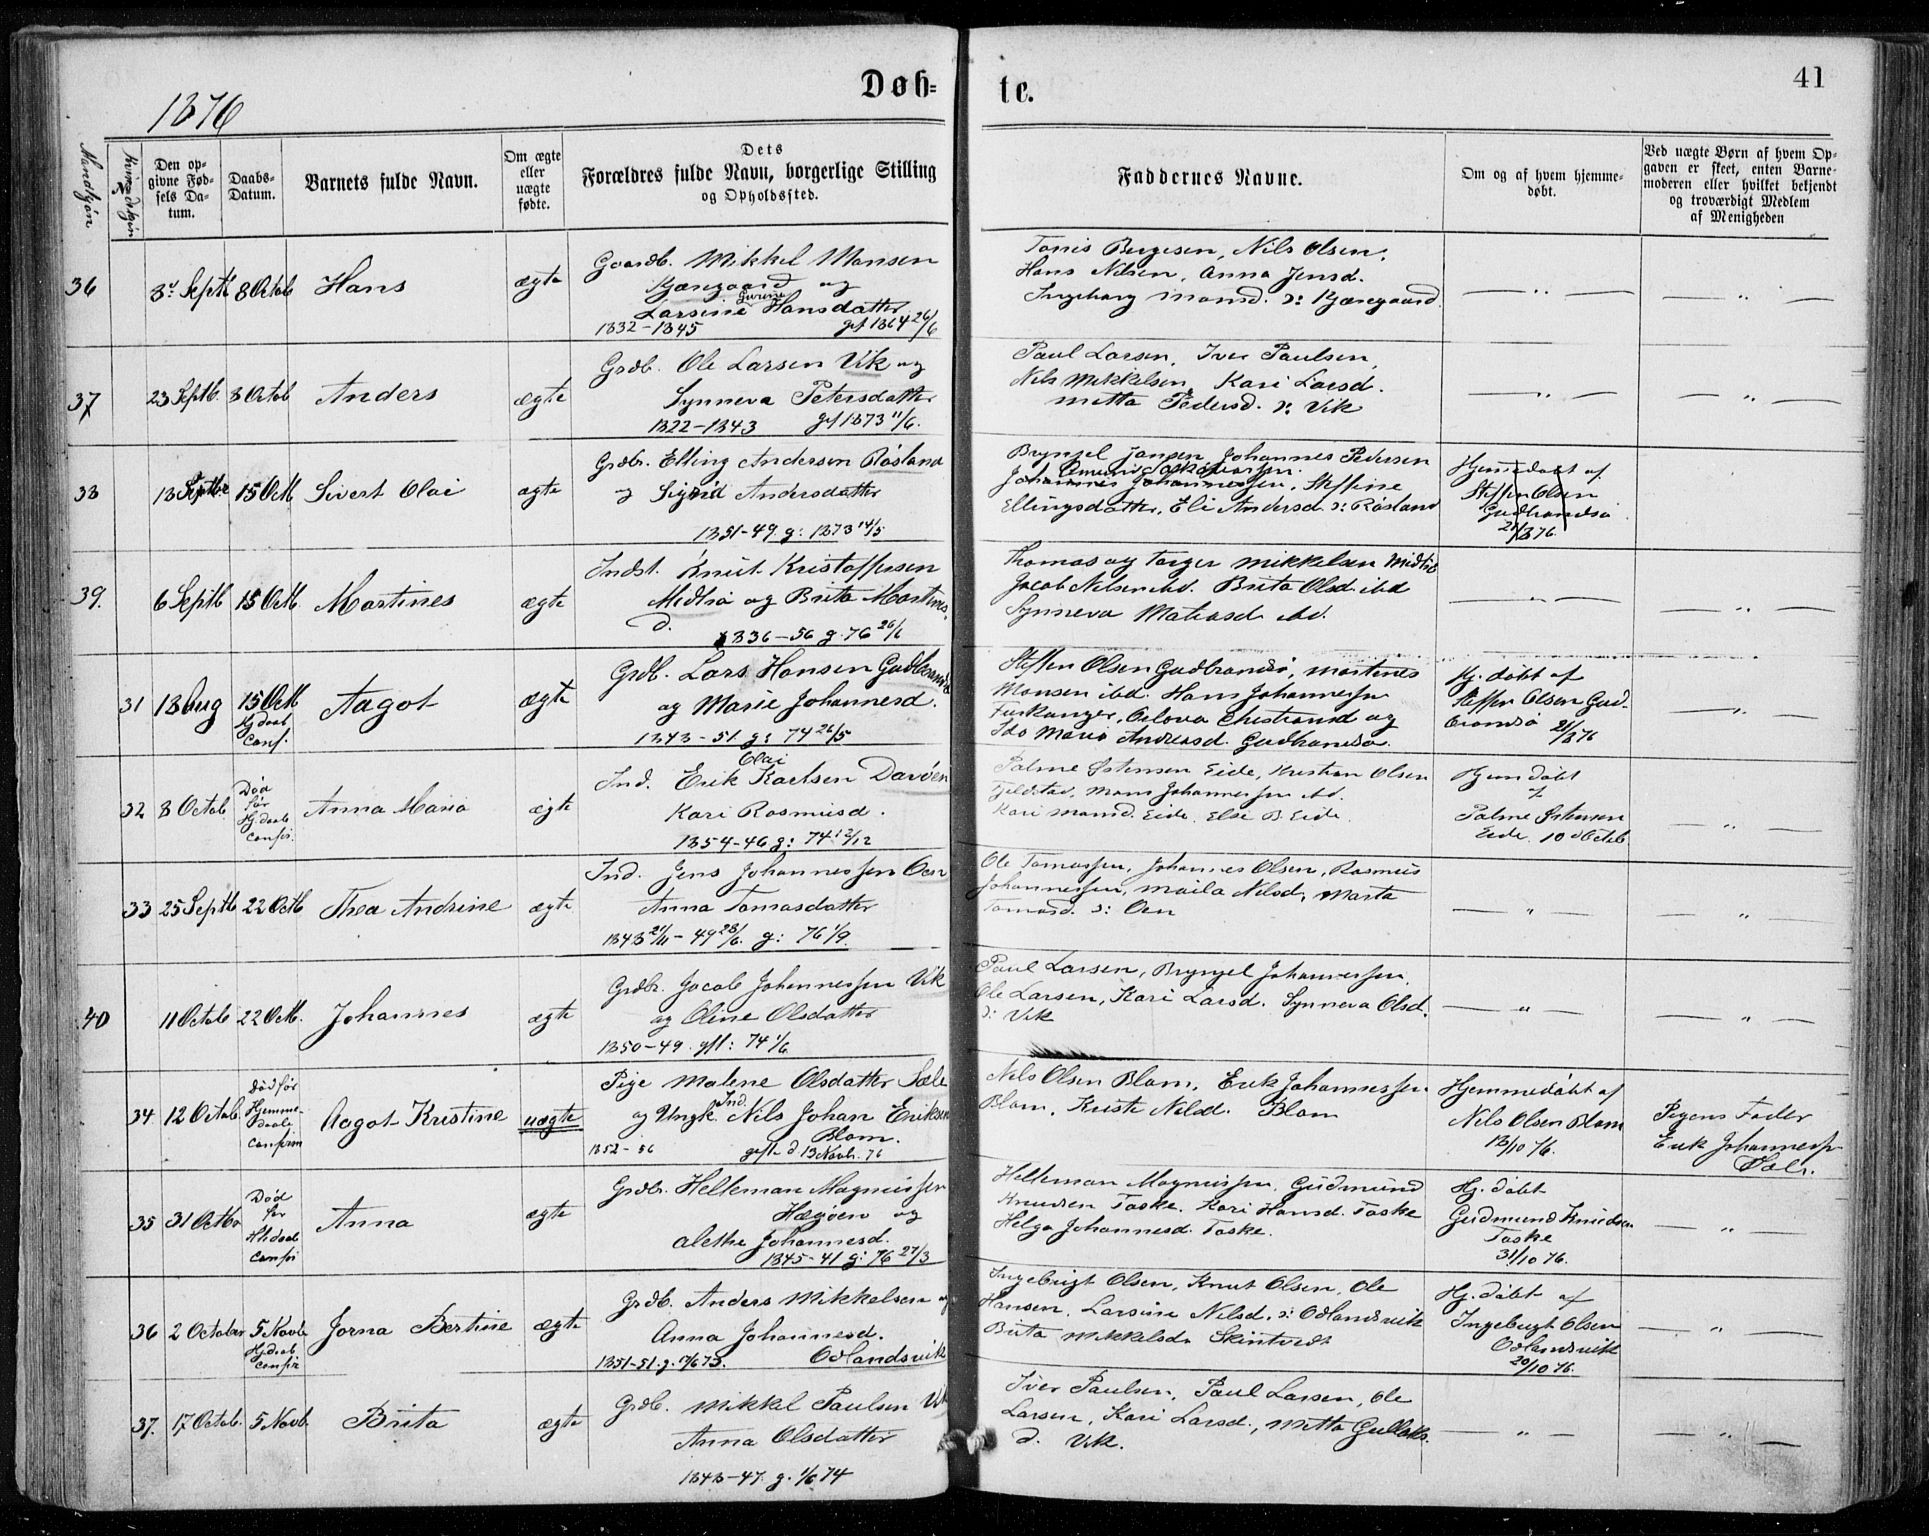 Døb=
te.
41
1876
Mandkjøn
Kvindekjøn
N
Den op=
givne Fød=
sels Da=
tum.
Daabs=
Datum.
Barnets fulde Navn.
Om ægte
eller
uægte
fødte.
Dets
Forældres fulde Navn, borgerlige Stilling
og Opholdssted.
Faddernes Navne.
Om og af hvem hjemme=
døbt.
Ved uægte Børn af hvem Op=
gaven er skeet, enten Barne=
moderen eller hvilket bekjendt
og troværdigt Medlem
af Menigheden
36 Septb 8 Octob Hans ægte
Gaardb. Mikkel Monsen
Kjæregaard og
Gurine
Larsine Hansdatter
1832-1845 gft 1864 26/6
Tonis Bergesen, Nils Olsen,
Hans Nilsen, Anna Jensd.
Ingeborg Monsd. ɔ: Kjæregaard
— " — — " —
37 23 Septb. 8 Octob Anders ægte
Grdb. Ole Larsen Vik og
Synneva Petersdatter
1822-1843 gft 1873 11/6.
Paul Larsen, Iver Paulsen,
Nils Mikkelsen, Kari Larsd.
Mitta Pedersd. ɔ: Vik
— " — — " —
38 13 Septbr 15 Octb Sivert Olai ægte
Grdbr. Elling Andersen Røsland
og Sigrid Andersdatter
1851-49 g: 1873 14/5
Bryngel Jansen, Johannes Pedersen
Johannes Johannessen, Steffine
Ellingsdatter, Eli Andersd. ɔ: Røsland
Hjemmedøbt af
Steffen Olsen
Gudbrandsø
21/8 76.
39. 6 Septb 15 Octb Martines ægte
Indst. Knut Kristoffersen
Midtsø og Brita Martines
d.
1836-56 g. 76 26/6
Thomas og Torger Mikkelsen Midtsø
Jacob Nilsen ibd. Brita Olsd. ibd
Synneva Matiasd ibd.
— " — — " —
31 13 Aug 15 Octb
Hj.daab
Conf.
Aagot ægte
Grdb. Lars Hansen Gudbrandsø
og Marie Johannesd.
1843-51. g: 74 26/5
Steffen Olsen Gudbrandsø, Martines
Monsen ibd. Hans Johannessen
Ida Maria Andreasd. Gudbrandsø.
Hj. døbt af
Steffen Olsen Gud-
brandsø 21/8 76
— " —
32 8 Octob
Død
før
Hj.daab
Confir.
Anna Maria ægte
Olai
Ind. Erik Karlsen Davøen
Kari Rasmusd.
1854-46 g: 74 12/12
Palme Østensen Eide, Kristian Olsen
Fjeldstad, Mons Johannessen ibd.
Kari Monsd. Eide, Else B. Eide.
Hjemdøbt
af
Palme Østensen
Eide. 10 Octob
— " —
33 25 Septb 22 Octb Thea Andrine ægte
Ind. Jens Johannessen Oen
Anna Tomasdatter
1848 21/11 - 49 28/6. g: 76 1/9.
Ole Tomassen, Johannes Olsen, Rasmus
Johannessen, Maila Nilsd, Marta
Tomasd. ɔ: Oen
— " — — " —
40 11 Octob 22 Octb. Johannes ægte
Grdbr. Jacob Johannessen Vik
og Oline Olsdatter
1850-49 gft: 74 1/6
Paul Larsen, Bryngel Johannessen.
Ole Larsen, Kari Larsd. Synneva Olsd.
ɔ: Vik
— " — — " —
34 12 Octob.
død før
Hjemme-
daab
Confirm
Aagot Kristine uægte
Pige Malene Olsdatter Sæle
Ind.
og Ungk. Nils Johan Eriksen
Blom.
1852-56 gifte d 13 Novb. 76
Nils Olsen Blom, Erik Johannessen
Blom, Kristi Nilsd. Blom
Hjemmedøbt af
Nils Olsen Blom
13/10 76.
Pigens Fader
Erik Johanness
Sæle.
35 31 Octbr
Død
før
Hj.daab
Confir
Anna ægte
Grdbr. Helleman Magnussen
Hægøen og
Alethe Johannesd.
1845-41 g: 76 27/3
Helleman Magnussen, Gudmund
Knudsen Taske. Kari Hansd. Taske
Helga Johannesd. Taske.
Hj. døbt
Gudmund Knudsen
Taske
31/10 76.
— " —
36 2 October 5 Novb
Hj.daab
Confir
Jorna Bertine ægte
Grdb. Anders Mikkelsen og
Anna Johannesd.
1851-51. g. Odlandsvik
Ingebrigt Olsen, Knut Olsen, Ole
Hansen, Larsine Nilsd. ɔ: Odlandsvik
Brita Mikkelsd. Skintveit
Hj. døbt af
Ingebrigt Olsen
Odlandsvik
20/10 76.
— " —
37. 17 Octob. 5 Novb. Brita ægte
Grdb. Mikkel Paulsen Vik
Anna Olsdatter
1848-47. g. 1/6 74
Iver Paulsen, Paul Larsen, Ole
Larsen, Kari Larsd., Mitta Gullaks.
d. Vik.
— " — — " —